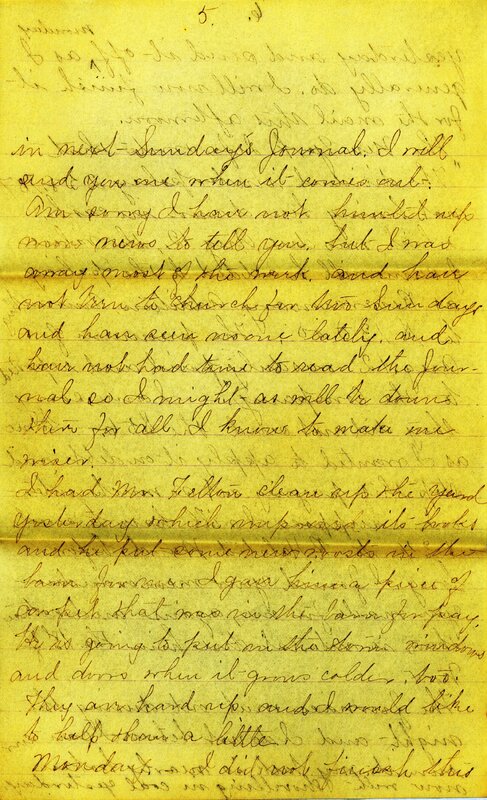 5.
in next Sunday's Journal. I will
send you one when it comes out.
Am sorry I have not hunted up
more news to tell you, but I was
away most of the week, and have
not been to church for two Sundays
and have seen no one lately, and
have not had time to read the Jour-
nal so I might as well be down
there for all I know to make me
wiser.
I had Mr. Felton clean up the yard
yesterday which improved its looks
and he put some new posts in the
barn for me. I gave him a piece of
carpet that was in the barn for pay.
He is going to put in the storm windows
and doors when it grows colder, too.
They are hard up and I would like
to help them a little.
Monday. I did not finish this